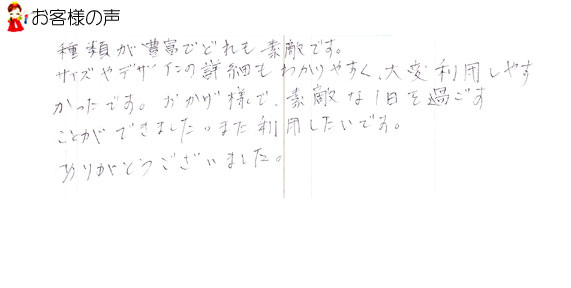 お客様の声
種類が豊富でどれも素敵です。
サイズやデザインの詳細もわかりやすく、大変利用しやす
かったです。おかげ様で、素敵な1日を過ごす
ことができました。また利用したいです。
ありがとうございました。